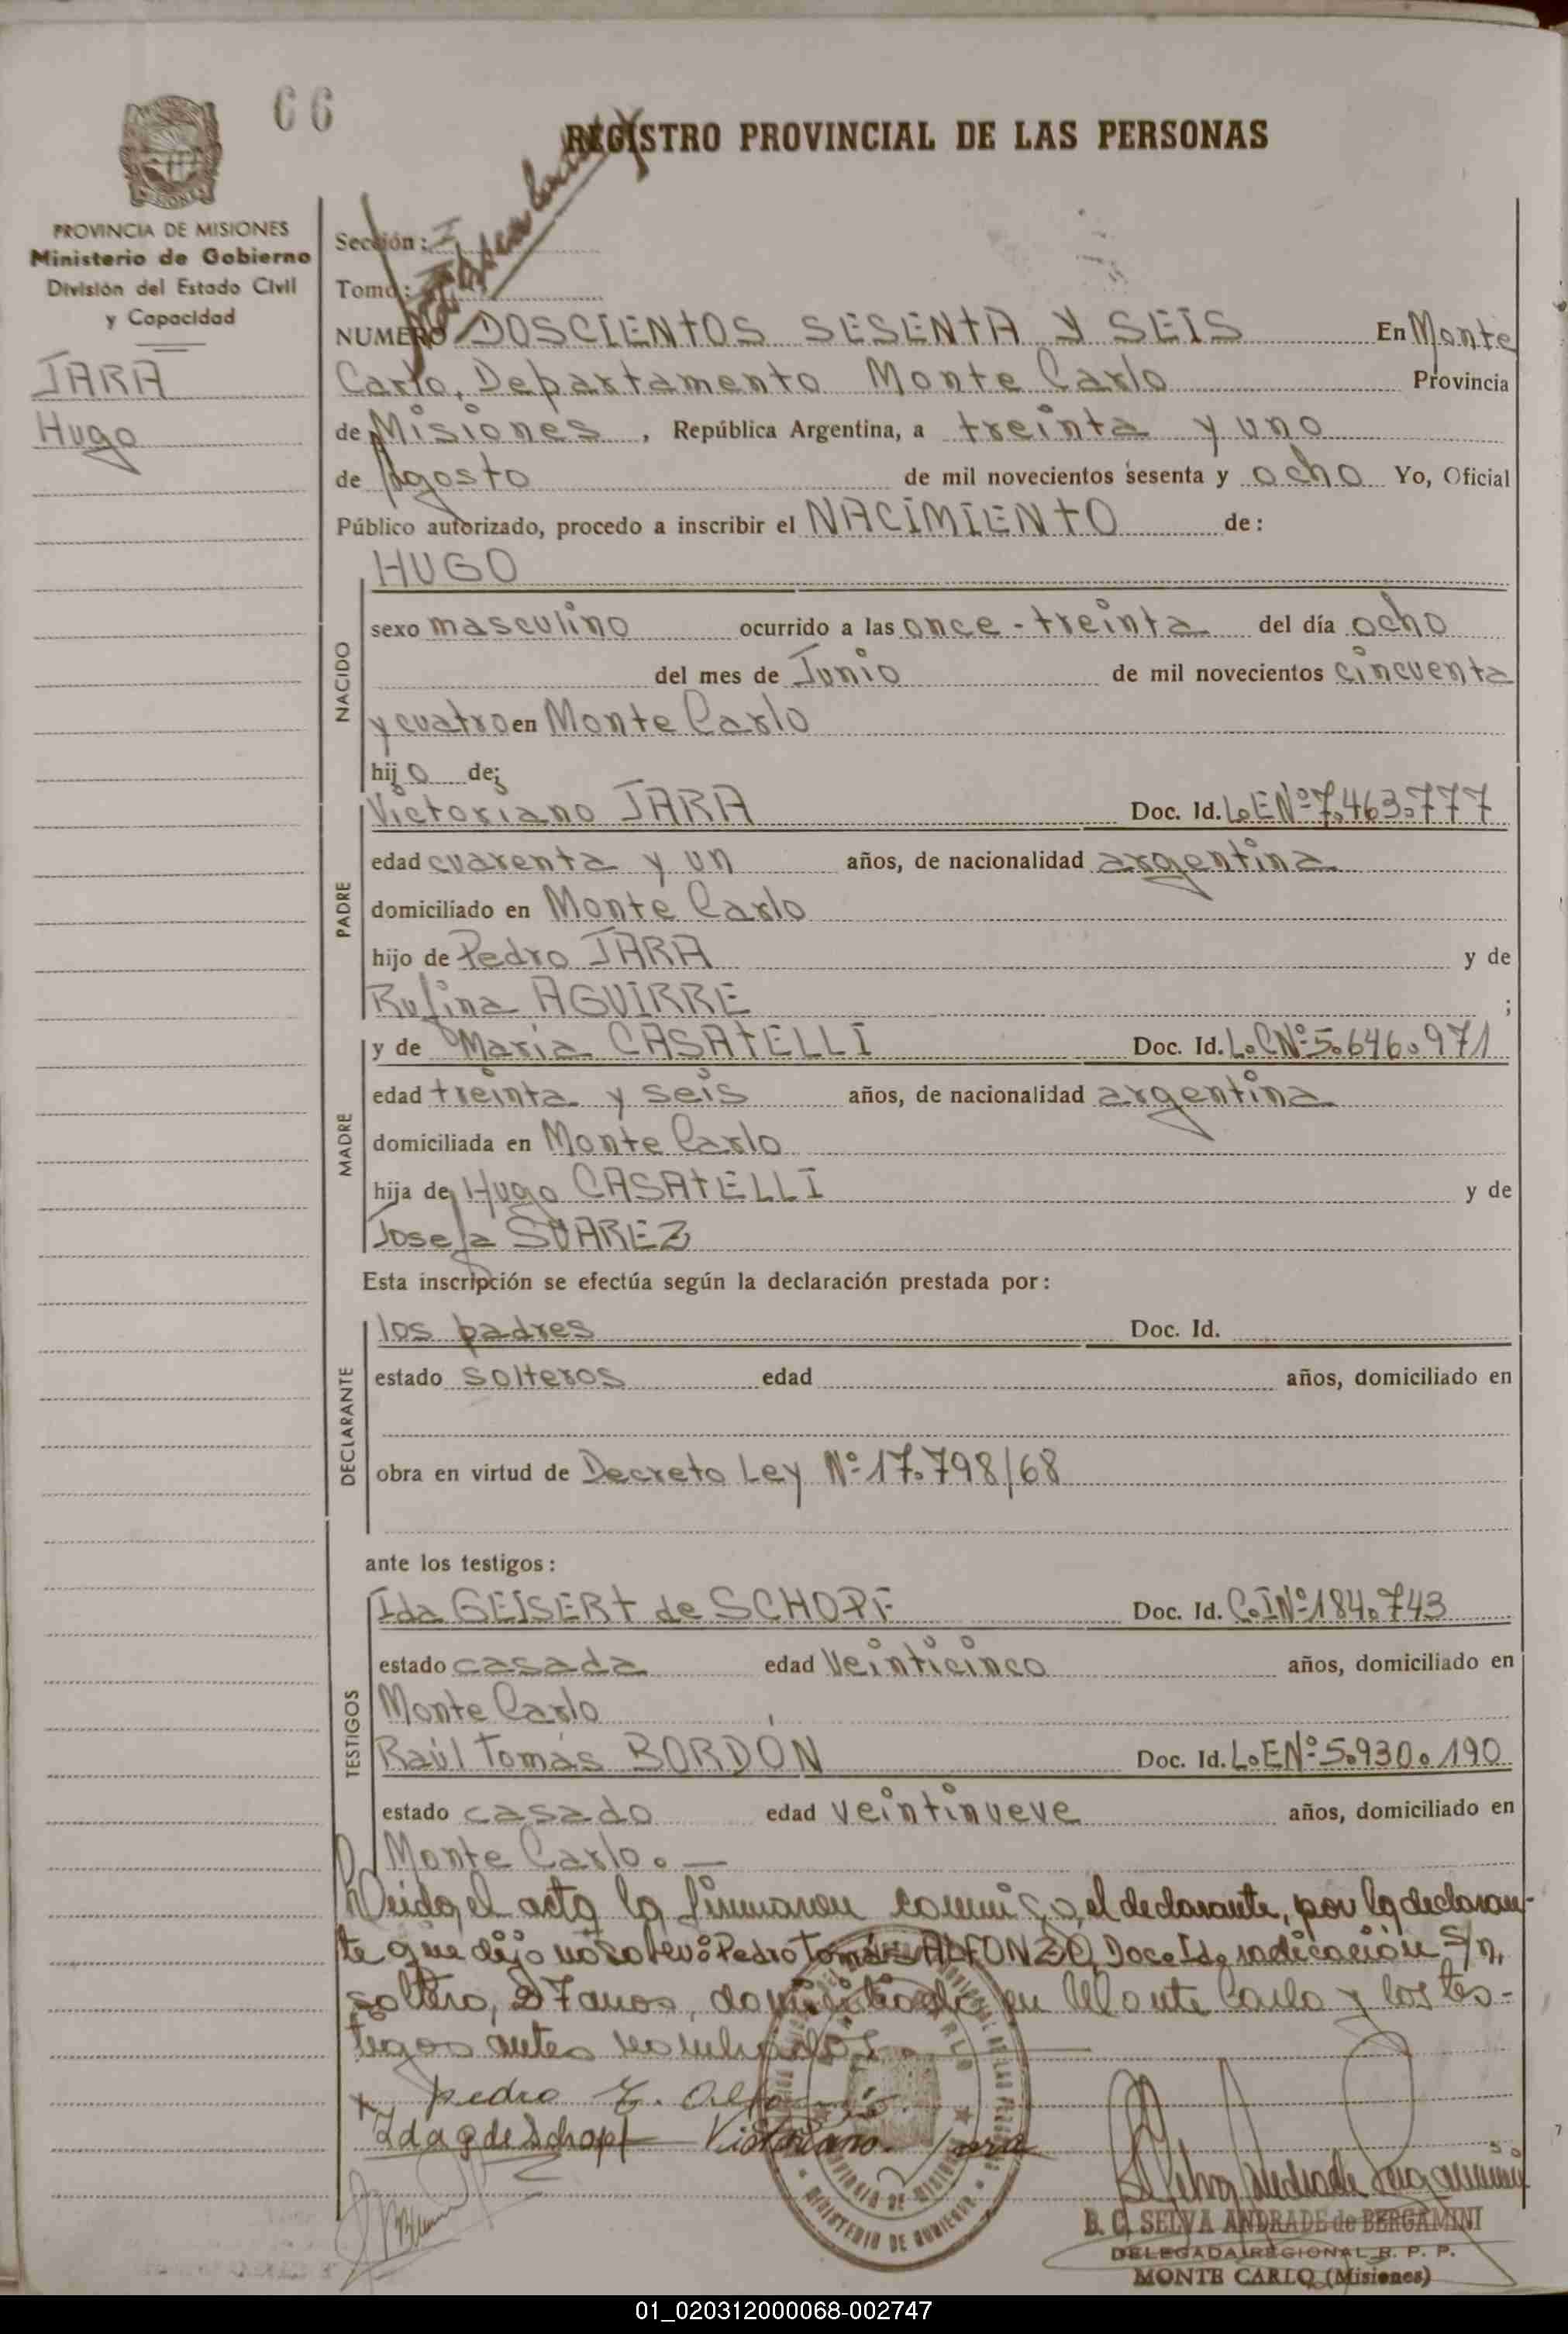 66
REGISTRO PROVINCIAL DE LAS PERSONAS
PROVINCIA DE MISIONES
Ministerio de Gobierno
División del Estado Civil
y Capacidad
JARA
Hugo
Sección: I
Tomo:
NUMERO DOSCIENTOS SESENTA Y SEIS En Monte
Carlo, Departamento Monte Carlo Provincia
de Misiones, República Argentina, a treinta y uno
de Agosto de mil novecientos sesenta y ocho Yo, Oficial
Público autorizado, procedo a inscribir el NACIMIENTO de:
NACIDO
HUGO
sexo masculino ocurrido a las once-treinta del día ocho
del mes de Junio de mil novecientos cincuenta
y cuatro en Monte Carlo
hijo de;
PADRE
Victoriano JARA Doc. Id. L.E Nº 7.463.777
edad cuarenta y un años, de nacionalidad argentina
domiciliado en Monte Carlo
hijo de Pedro JARA y de
Rufina AGUIRRE ;
MADRE
y de María CASATELLI Doc. Id. L.C Nº 5.646.971
edad treinta y seis años, de nacionalidad argentina
domiciliada en Monte Carlo
hija de Hugo CASATELLI y de
Josefa SUAREZ
Esta inscripción se efectúa según la declaración prestada por:
DECLARANTE
los padres Doc. Id.
estado solteros edad años, domiciliado en
obra en virtud de Decreto Ley Nº 17.798/68
ante los testigos:
TESTIGOS
Ida GEISERT de SCHOPF Doc. Id. C.I Nº 184.743
estado casada edad veinticinco años, domiciliado en
Monte Carlo
Raúl Tomás BORDÓN Doc. Id. L.E Nº 5.930.190
estado casado edad veintinueve años, domiciliado en
Monte Carlo.—
Leida, el acta la firmaron conmigo, el declarante, por la declaran-
te que dijo no saber: Pedro Tomás ALFONZO, Doc. Id. radicación S/n,
soltero, 27 anos, domiciliado en Monte Carlo y los tes-
tigos antes nombrados.
Pedro T. Alfonzo
Ida G de Schopf Victoriano Jara
MINISTERIO DE GOBIERNO
PROVINCIA DE MISIONES
B. C. SELVA ANDRADE de BERGAMINI
DELEGADA REGIONAL R. P. P.
MONTE CARLO (Misiones)
01_020312000068-002747